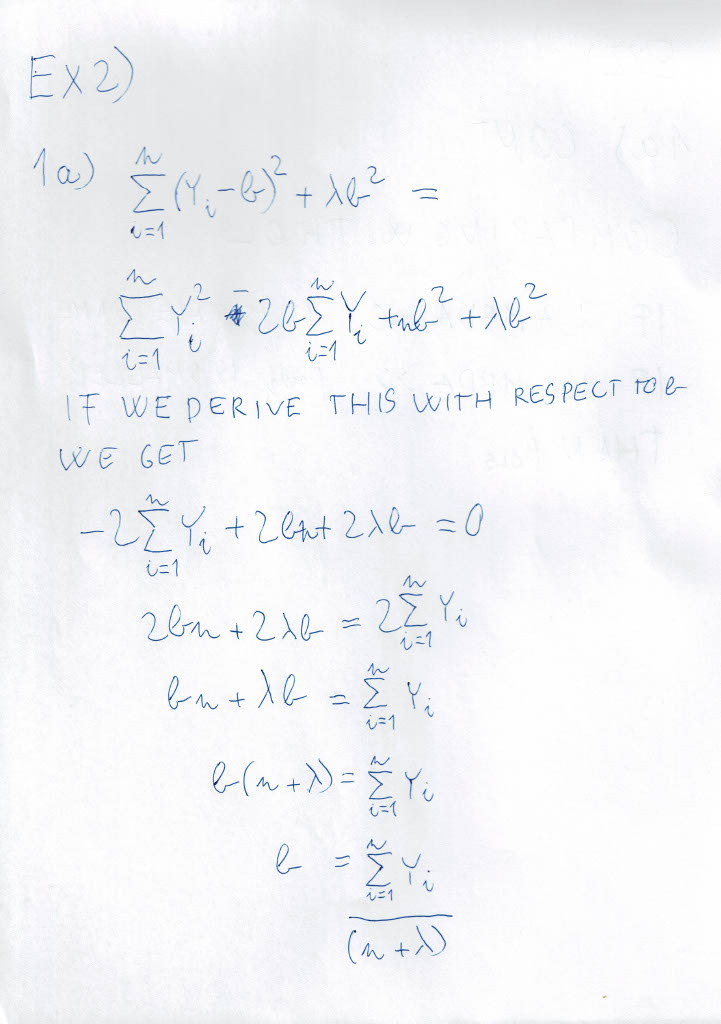 Ex2)
1a) \sum_{i=1}^{n} (Y_i - b)^2 + λb^2 =
\sum_{i=1}^{n} Y_i^2 - 2b \sum_{i=1}^{n} Y_i + nb^2 + λb^2
IF WE DERIVE THIS WITH RESPECT TO b
WE GET
-2 \sum_{i=1}^{n} Y_i + 2bn + 2λb = 0
2bn + 2λb = 2 \sum_{i=1}^{n} Y_i
bn + λb = \sum_{i=1}^{n} Y_i
b(n + λ) = \sum_{i=1}^{n} Y_i
b = \frac{\sum_{i=1}^{n} Y_i}{(n + λ)}